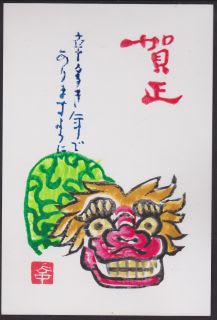 賀正
幸多き年で
ありますように